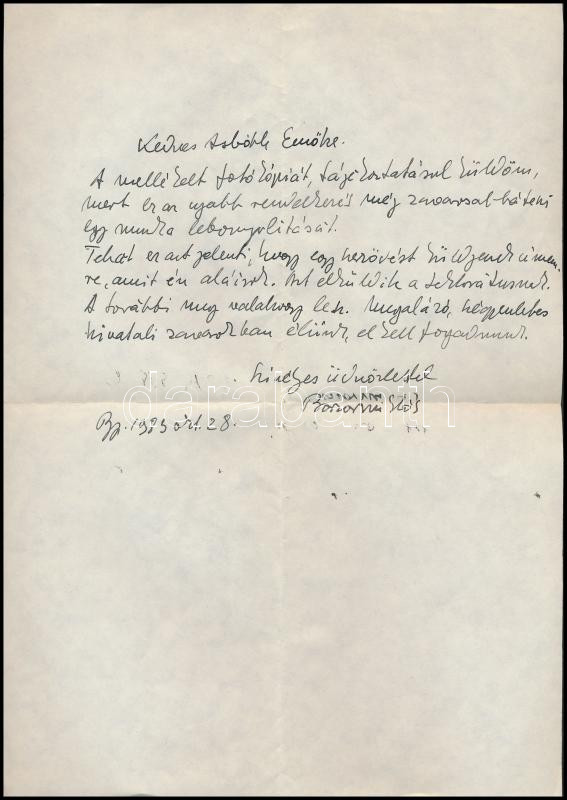 Kedves Asbóth Emőke.
A mellékelt fotókópiát, tájékoztatásul küldöm,
mert ez az ujabb rendelkezés még zavarosabbá teszi
egy munka lebonyolitását.
Tehát ez azt jelenti, hogy egy kérdvést küldjenek címem
re, amit én aláirok. Azt elküldik a lektorátusnak.
A további meg valahogy lesz. Megalázó, szégyenletes
hivatali zavarokban élünk, el kell fogadnunk.
Szivélyes üdvözlettel
Borsos Miklós
Bp. 1985 okt. 28.
darabanth.com